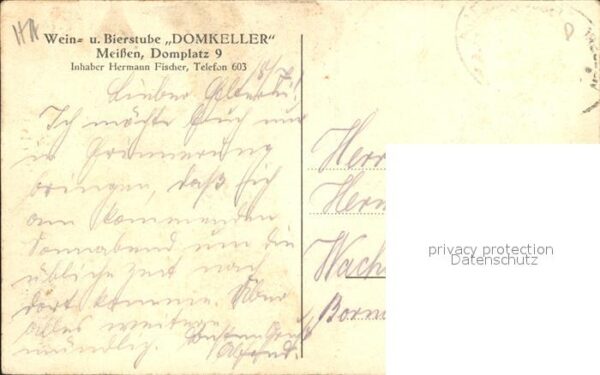 Wein- u. Bierstube „DOMKELLER"
Meißen, Domplatz 9
Inhaber Hermann Fischer, Telefon 603
Lieber
Ich möchte Euch nur
in Erinnerung
bringen, daß ich
am kommenden
Sonnabend um die
übliche Zeit nach
dort komme. Über
alles weitere
mündlich.
Herr
Wach
privacy protection
Datenschutz